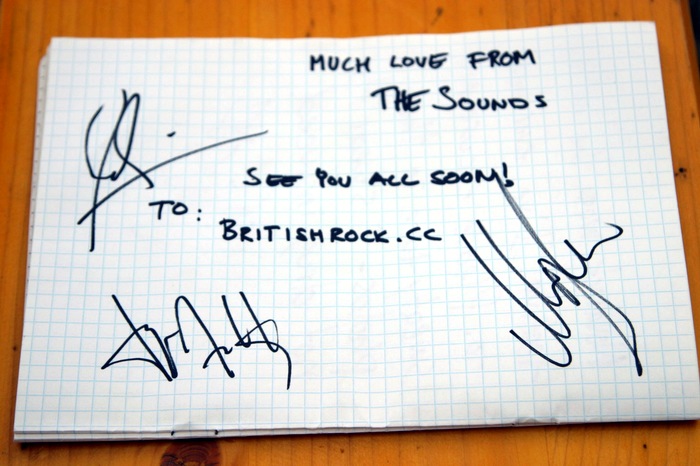 MUCH LOVE FROM
THE SOUNDS
SEE YOU ALL SOON!
TO:
BRITISHROCK.CC